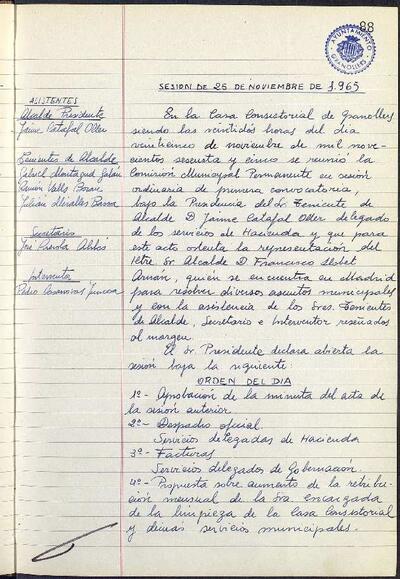 88
AYUNTAMIENTO
GRANOLLERS
SESION DE 25 DE NOVIEMBRE DE 1.965
ASISTENTES
Alcalde Presidente
Jaime Catafal Oller
Tenientes de Alcalde
Gabriel Montagud
Ramon Valls
Julián Miralles
Secretario
José
Interventor
Pedro Casanovas Juncosa
En la Casa Consistorial de Granollers
siendo las veintidos horas del dia
veinticinco de noviembre de mil nove-
cientos sesenta y cinco se reunió la
Comisión Municipal Permanente en sesión
ordinaria de primera convocatoria,
bajo la Presidencia del Sr. Teniente de
Alcalde D Jaime Catafal Oller delegado
de los servicios de Hacienda y que para
este acto ostenta la representación del
Iltre Sr. Alcalde D Francisco Llobet
Arnán, quién se encuentra en Madrid
para resolver diversos asuntos municipales
y con la asistencia de los Sres. Tenientes
de Alcalde, Secretario e Interventor reseñados
al margen.
El Sr Presidente declara abierta la
sesión bajo la siguiente
ORDEN DEL DIA
1º- Aprobación de la minuta del acta de
la sesión anterior
2º- Despacho oficial.
Servicios delegados de Hacienda
3º- Facturas
Servicios delegados de Gobernación.
4º- Propuesta sobre aumento de la retribu-
ción mensual de la Sra encargada
de la limpieza de la Casa Consistorial
y demás servicios municipales.